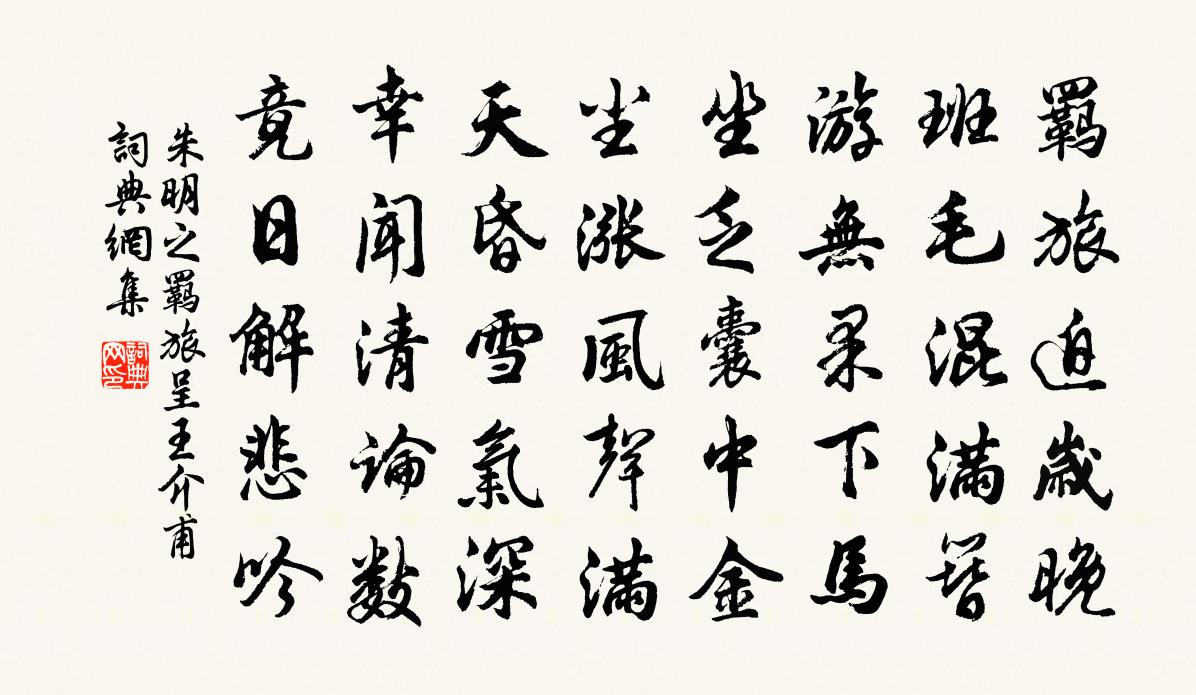 羈旅迫歲晚
班毛混滿簪
游無果下馬
坐乏囊中金
尘漲風聲滿
天昏雪氣深
幸聞清論數
竟日解悲吟
朱明之羈旅呈王介甫
詞典網集
詞典网印